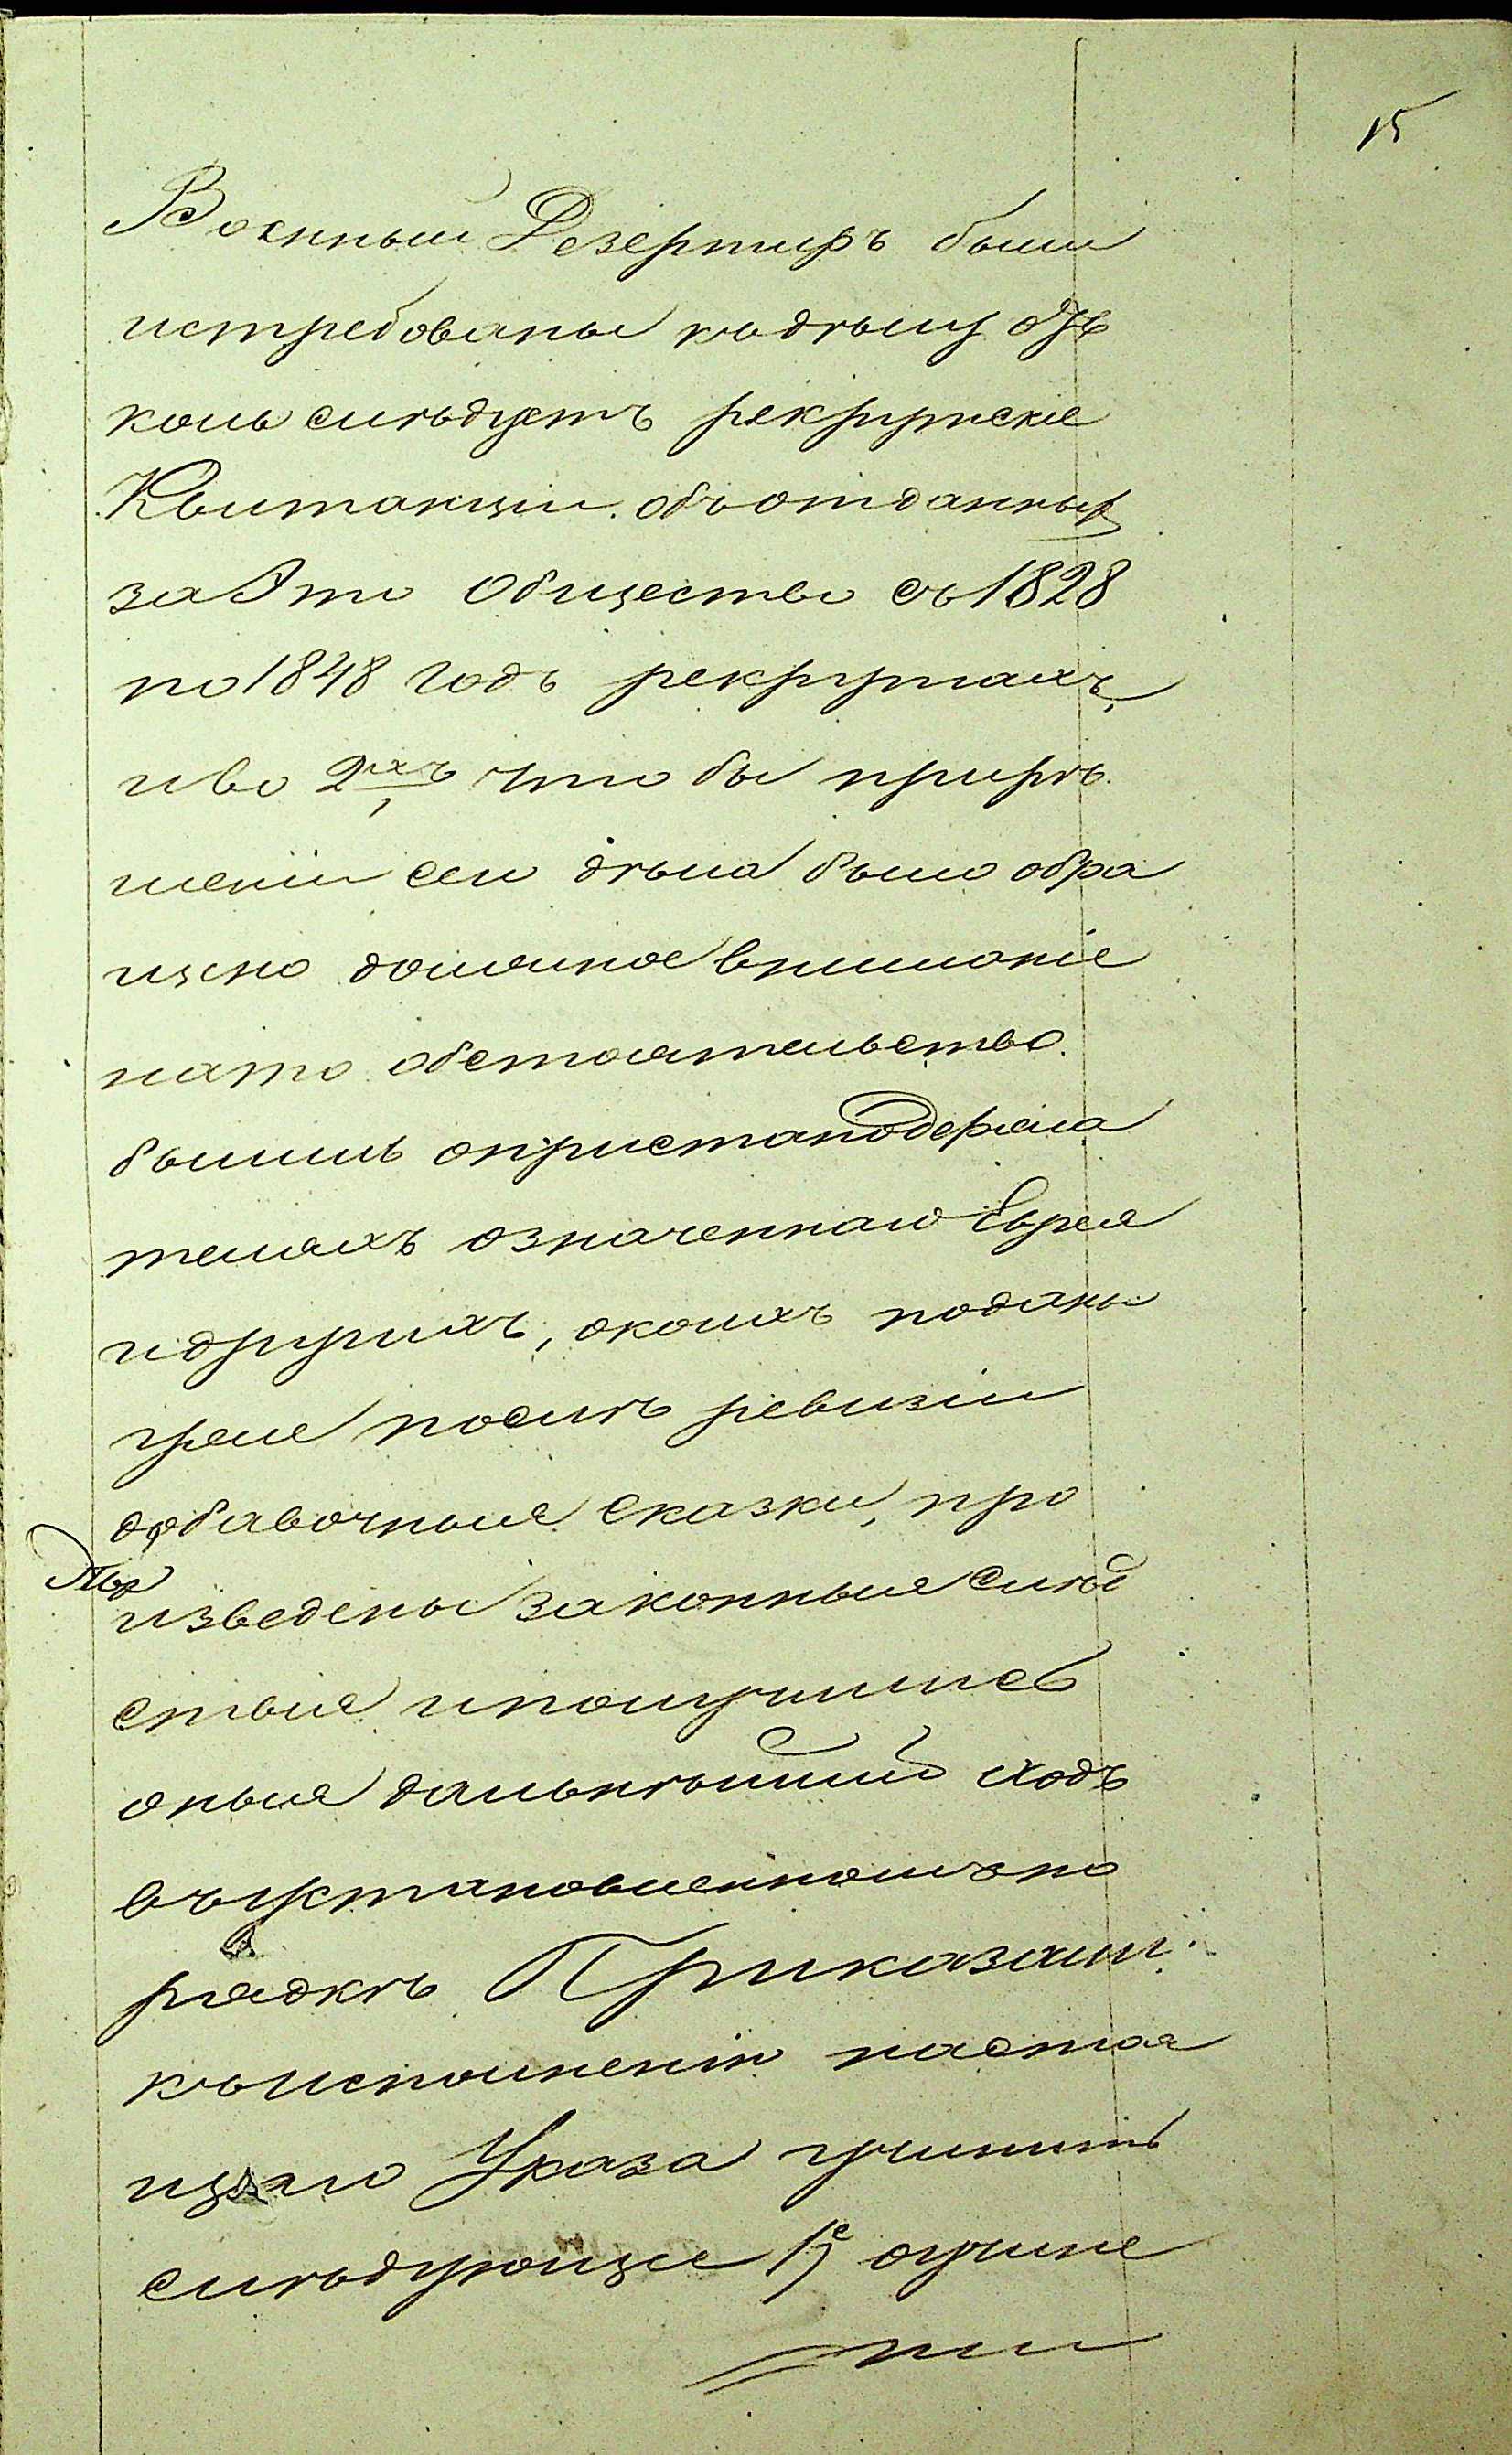 15
Военный Дезертиръ были
истребованы къ дѣлу буде
коль слѣдуетъ рекрутскіе
Квитанціи объ отданныхъ
за Это Общество съ 1828
по 1848 годъ рекрутахъ,
и во 2хъ что бы при рѣ
шеніи сего дѣла было обра
щено должное вниманіе
на то обстоятельство.
были ль о пристанодержа
теляхъ означеннаго Еврея
и другихъ, о коихъ поданы
уже послѣ ревизіи
добавочныя сказки, про
изведены законныя слѣд
ствія и получили съ
оныя дальнѣйшій ходъ
въ установленномъ по
рядкѣ Приказали:
къ исполненію настоя
щаго Указа учинить
слѣдующее 1е отуч­ине
нии